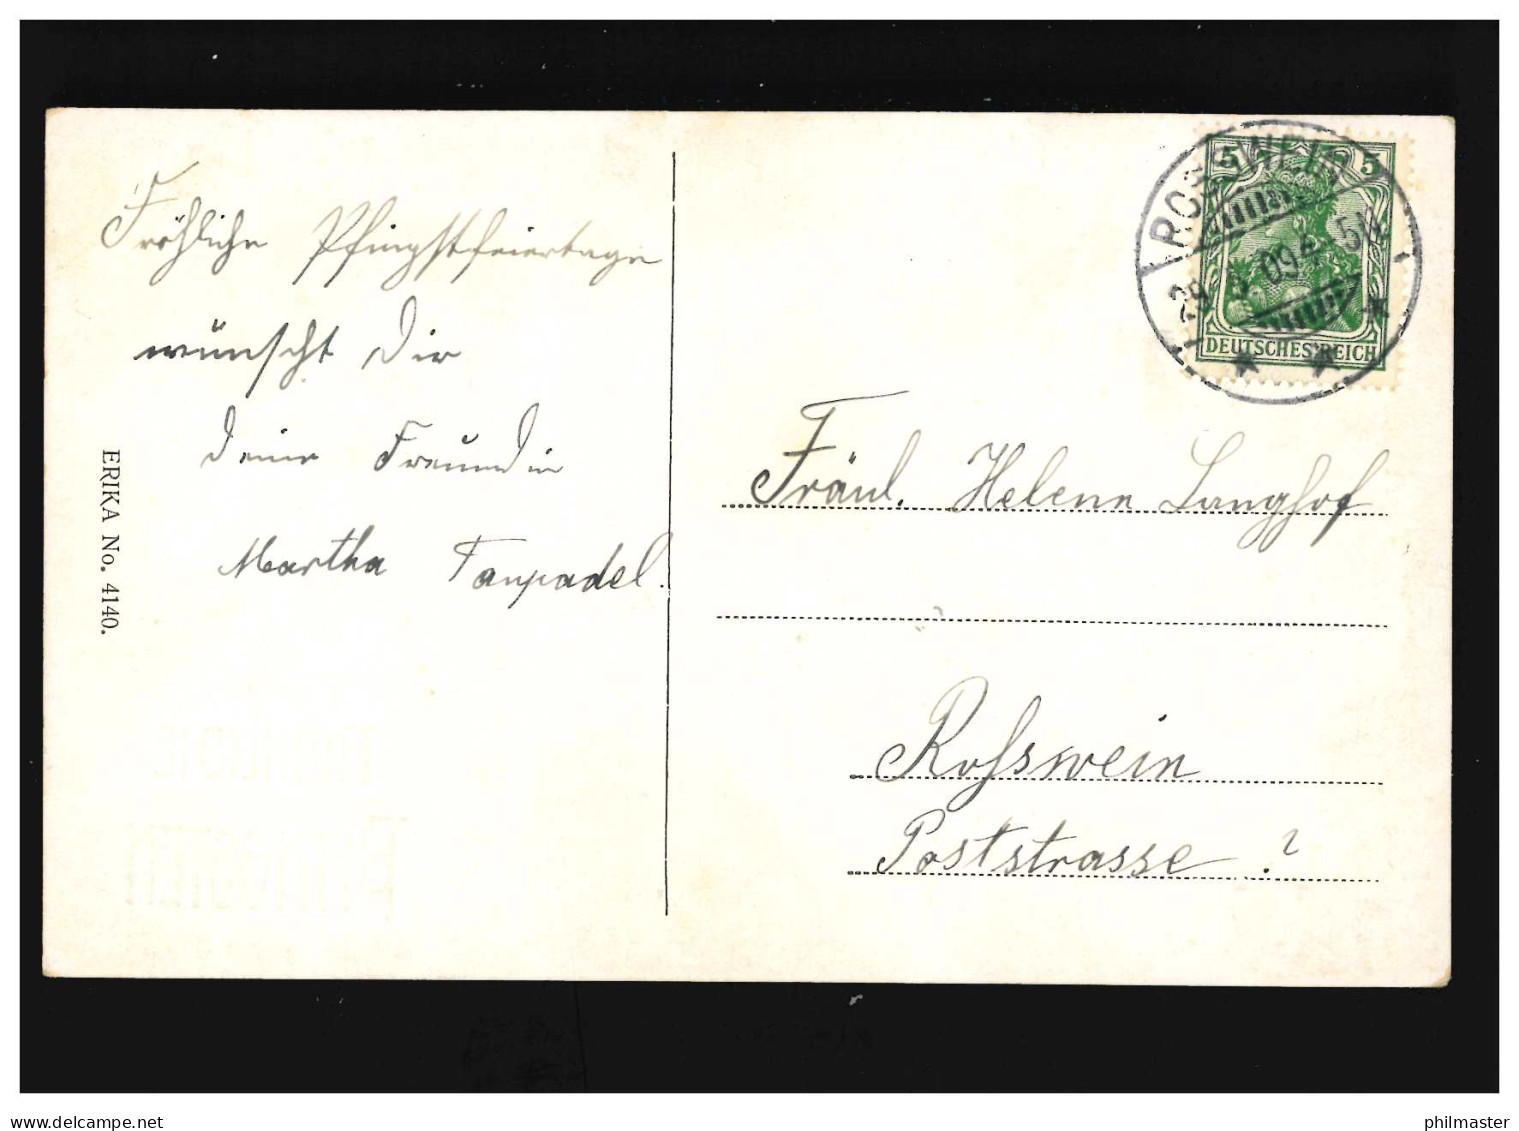 Fröhliche Pfingstfeiertage
wünscht Dir
Deine Freundin
Martha Tanpadel.
ERIKA No. 4140.
ROSSWEIN
29. 5. 09 4-5N
5 5
DEUTSCHES REICH
Fräul. Helene Langhof
Roßwein
Poststrasse ?
www.delcampe.net
philmaster